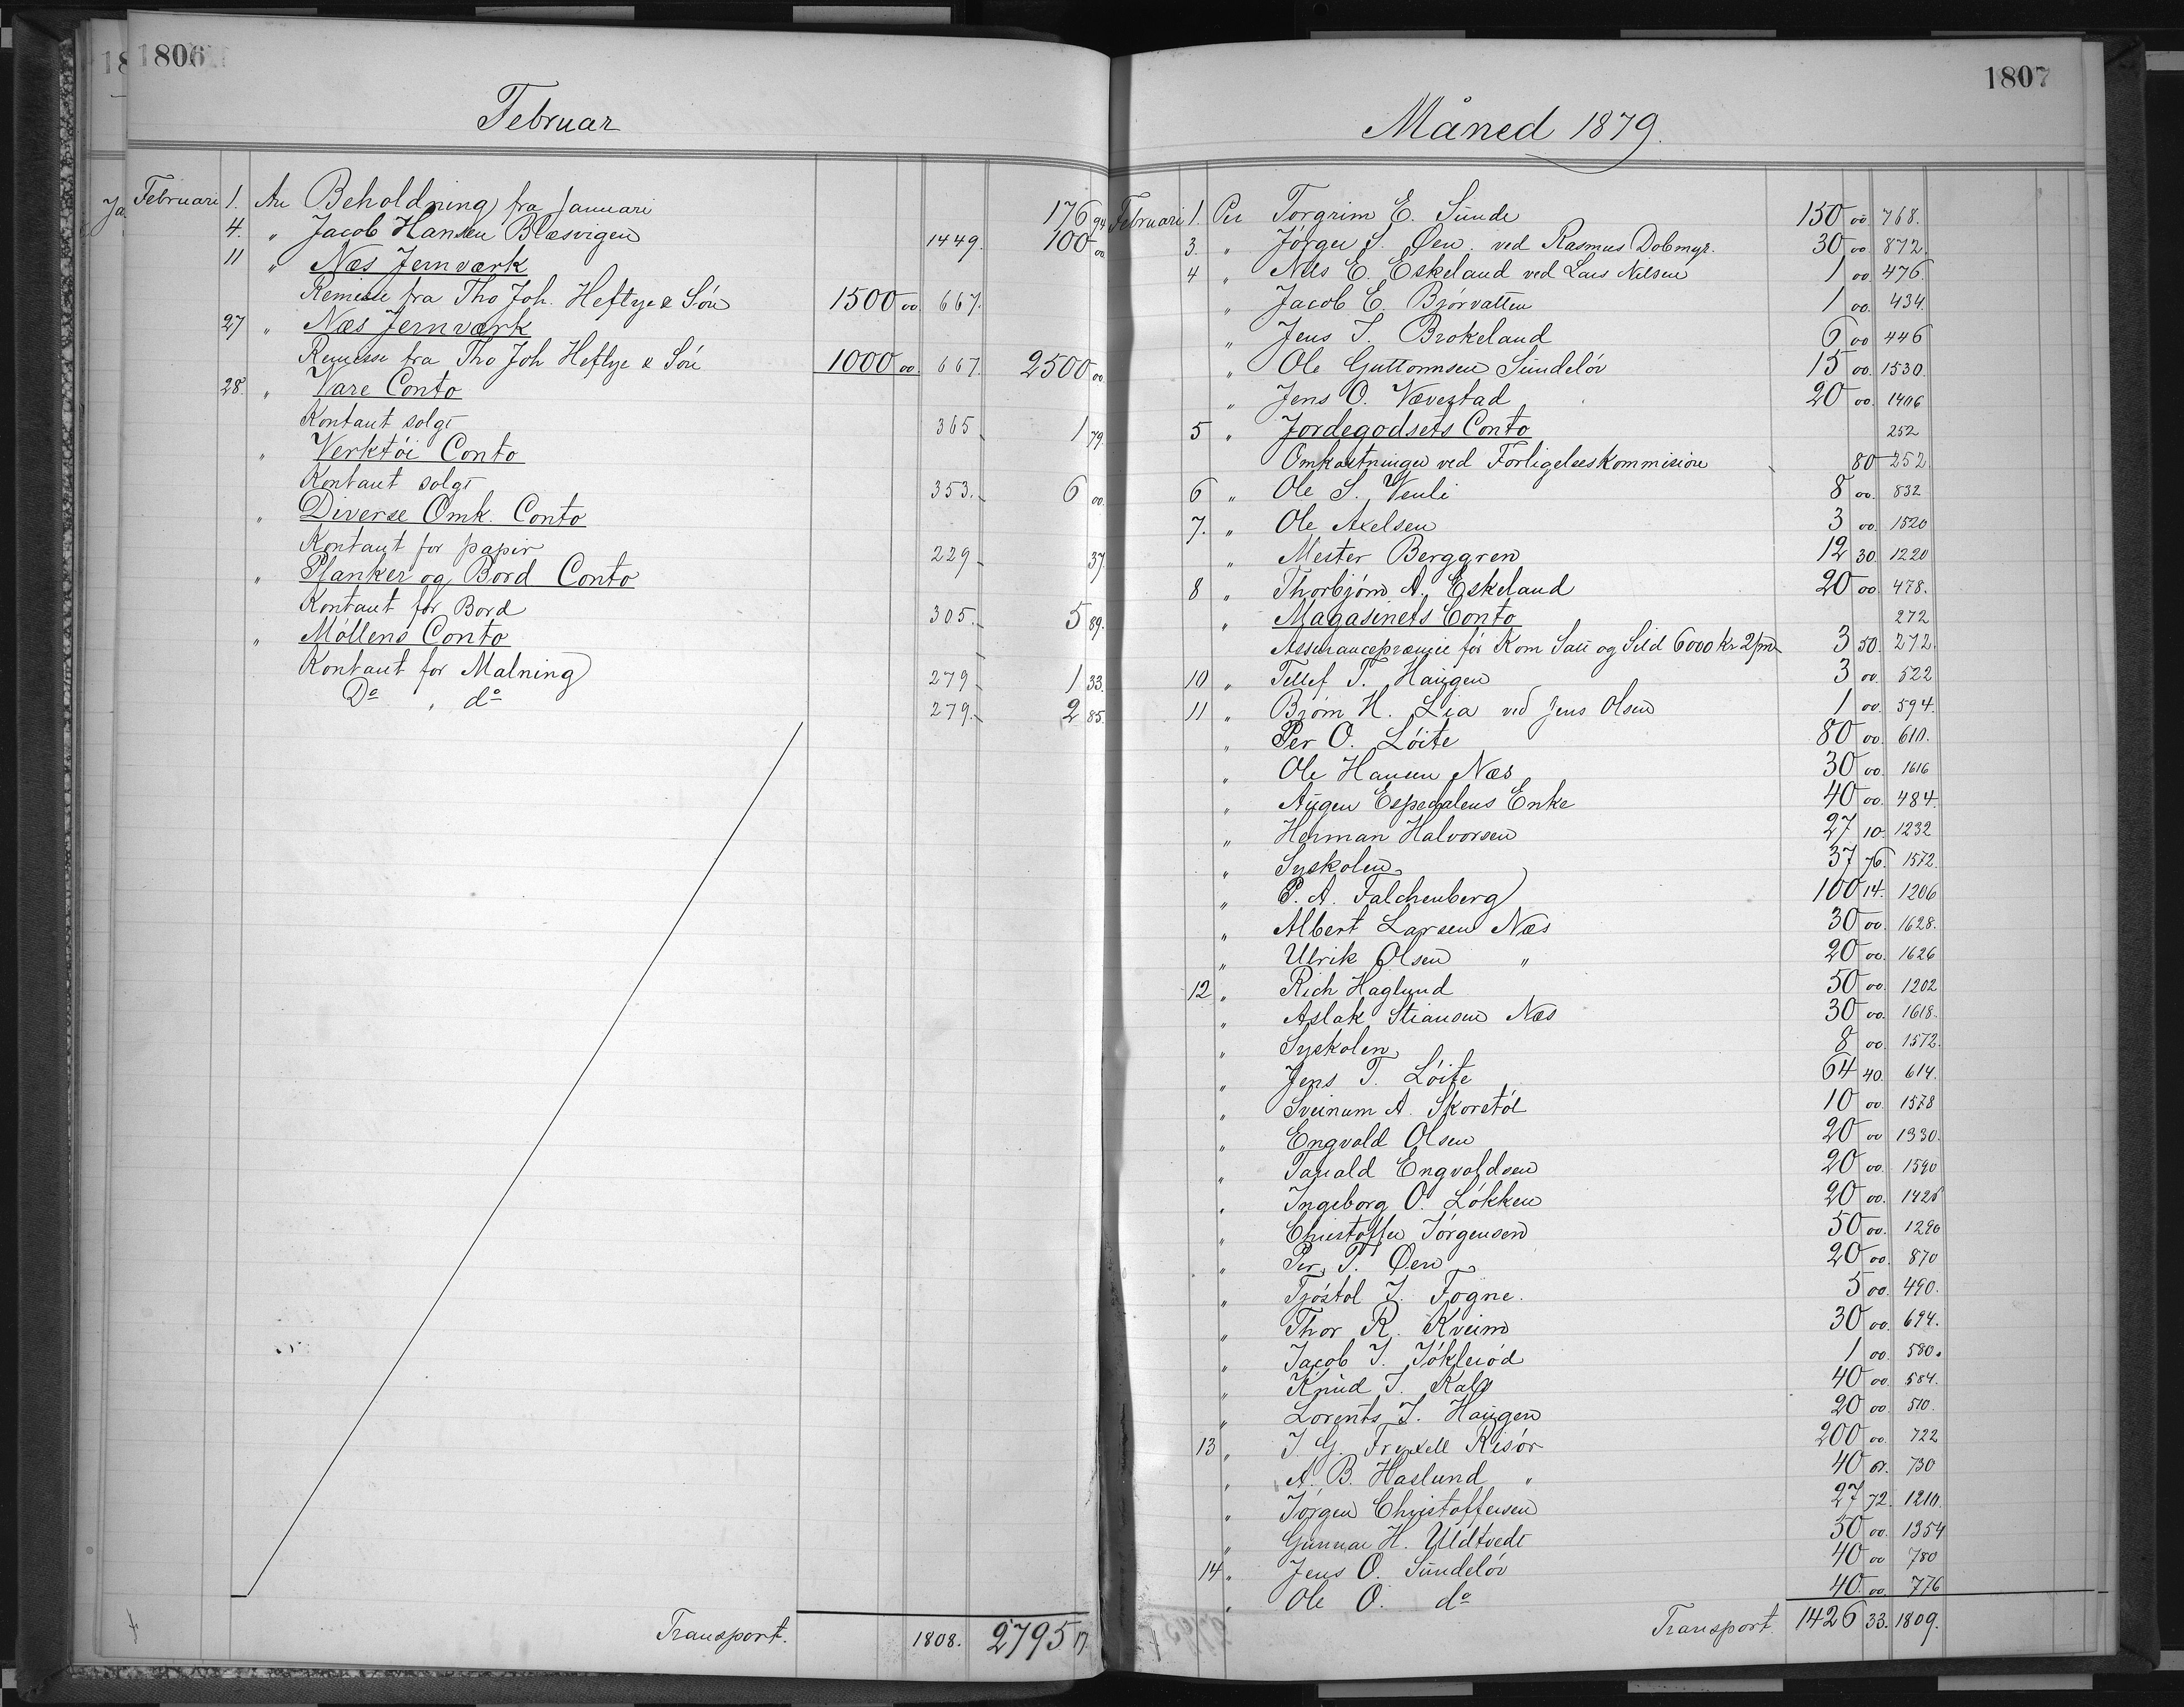 1806
Februar
Februari 1. An Beholdning fra Januari 176 94
4. " Jacob Hansen Blæsvigen 1449. 100 00
11 " Næs Jernværk
Remisse fra Tho Joh. Heftye & Sön 1500 00. 667.
27 " Næs Jernværk
Remisse fra Tho Joh Heftye & Sön 1000 00. 667. 2500 00.
28. " Vare Conto
Kontant solgt 365 1 79.
" Verktöi Conto
Kontant solgt 353. 6 00.
" Diverse Omk. Conto
Kontant for papir 229 37
" Planker og Bord Conto
Kontant for Bord 305. 5 89.
" Möllens Conto
Kontant for Malning 279 1 33.
Do " do 279. 2 85.
Transport. 1808. 2795 17.
1807
Måned 1879.
Februari 1. Per Torgrim E. Sunde 150 00 768.
3. " Jörgen S. Øen. ved Rasmus Dobmyr. 30 00 872.
4 " Nils E. Eskeland ved Lars Nilsen 1 00 476.
" Jacob E. Bjørvatten 1 00. 434.
" Jens T. Brokeland 6 00 446
" Ole Guttormsen Sundelöv 15 00. 1530.
" Jens O. Vævestad 20 00. 1406
5 " Jordegodsets Conto 252
Omkostninger ved Forligelseskommision 80 252
6 " Ole S. Venli 8 00. 832
7. " Ole Axelsen 3 00. 1520
" Mester Berggren 12 30. 1220
8 " Thorbjørn A. Eskeland 20 00. 478.
" Magasinets Conto 272
Assurancepræmie for Korn Salt og Sild 6000 Kr 2/m 3 50. 272.
10 " Tellef T. Haugen 3 00. 522
11 " Bjørn H. Lia ved Jens Olsen 1 00. 594.
" Per O. Löite 80 00. 610.
" Ole Hansen Næs 30 00. 1616
" Augen Espedalens Enke 40 00. 484.
" Herman Halvorsen 27 10. 1232
" Syskolen 37 76. 1572.
" P. A. Falchenberg 100 14. 1206
" Albert Larsen Næs 30 00. 1628.
" Ulrik Olsen " 20 00. 1626
12 " Rich Haglund 50 00. 1202
" Aslak Stiansen Næs 30 00. 1618.
" Syskolen 8 00. 1572.
" Jens T. Löite 64 40. 614.
" Sveinum A. Skoretöl 10 00. 1578
" Engvald Olsen 20 00 1330.
" Tarald Engvaldsen 20 00. 1590
" Ingeborg O. Lökken 20 00. 1426
" Christoffer Jörgensen 50 00. 1290
" Per T. Øen 20 00. 870
" Tjöstol J. Fogne. 5 00. 490.
" Thor R. Kveim 30 00. 694.
" Jacob J. Jökleröd 1 00. 580.
" Knud J. Kale 40 00. 584.
" Lorents J. Haugen 20 00. 510.
13 " J. G. Fryxell Risör 200 00. 722
" A. B. Haslund " 40 61. 730
" Jörgen Christoffersen 27 72. 1210.
" Gunnar H. Uldtvedt 50 00. 1354
14 " Jens O. Sundelöv 40 00 780
" Ole O. do 40. 00. 776
Transport. 1426 33. 1809.